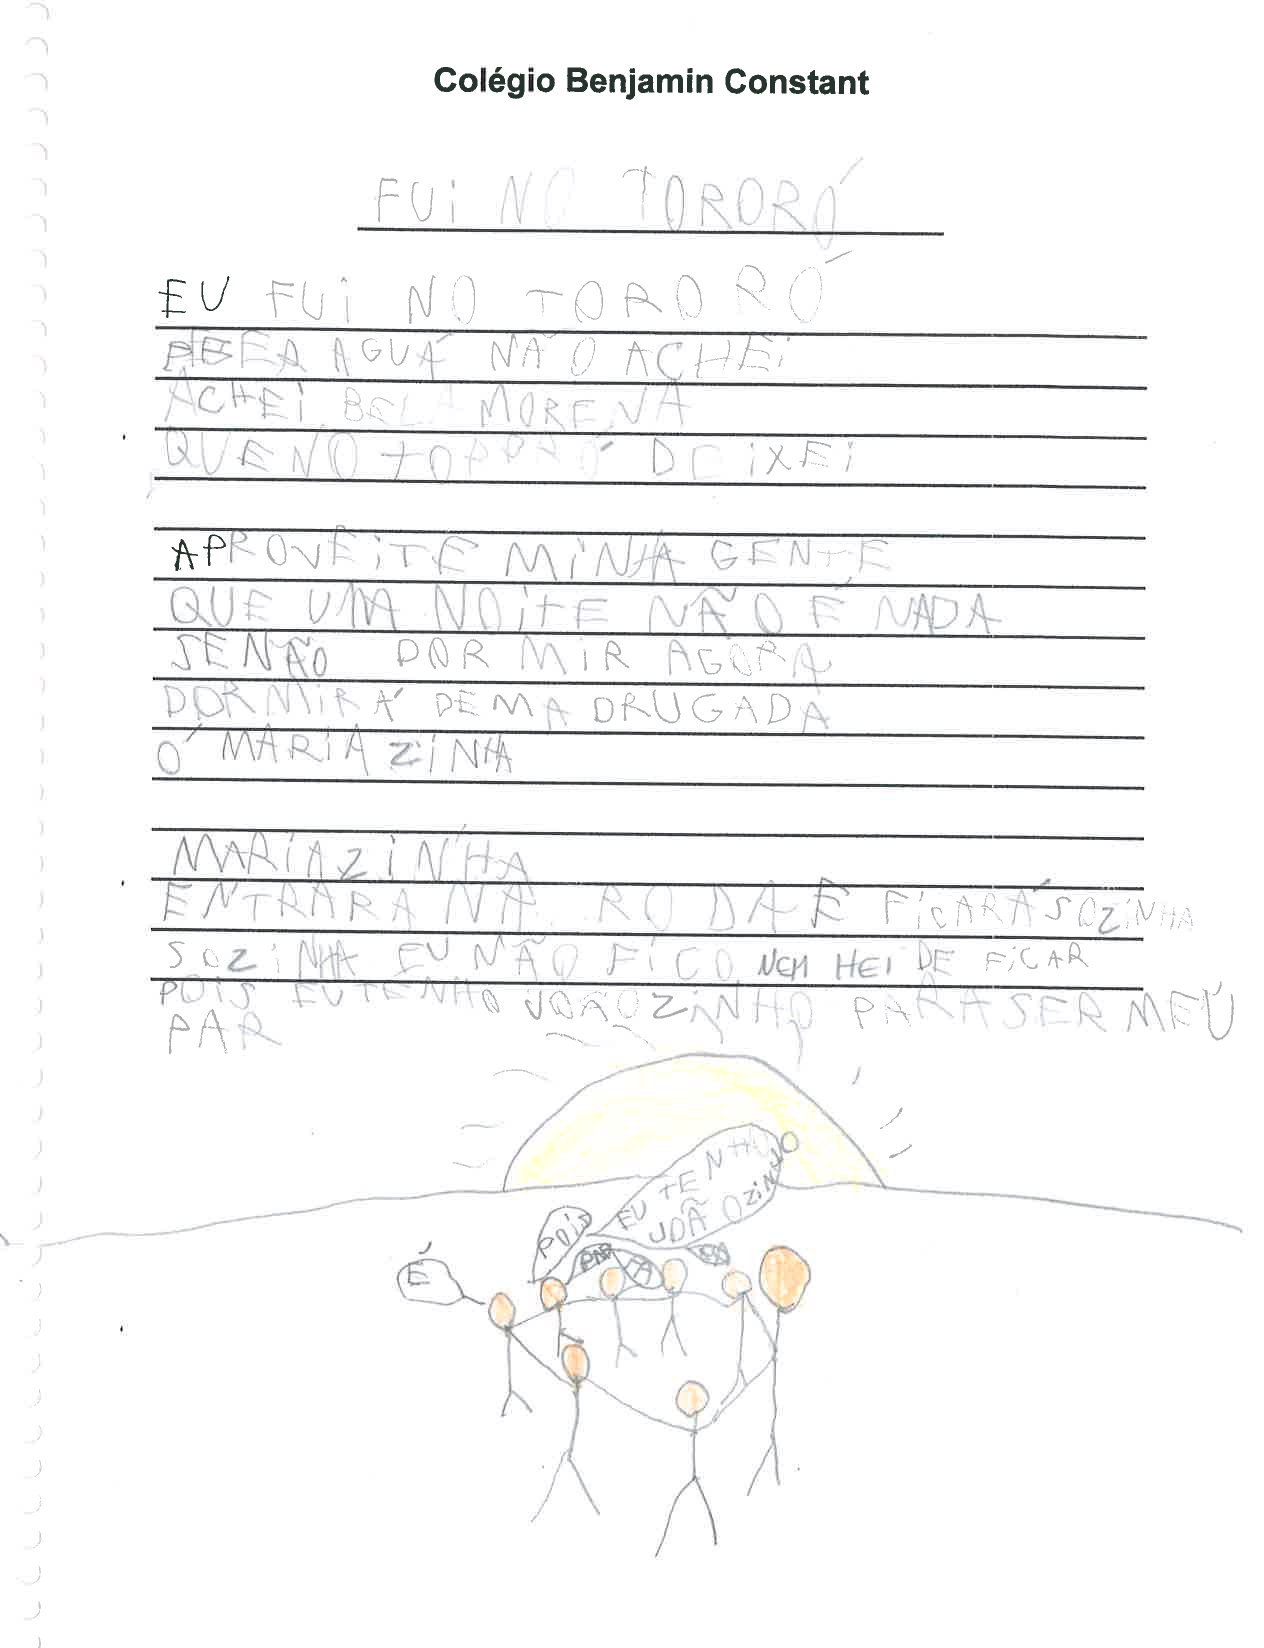 Colégio Benjamin Constant
FUi NO TORORÓ
EU FUi NO TORORÓ
AGUÁ NÃO ACHEi
ACHEi BELA MORENA
QUE NO TORORÓ DEiXEi
APROVEiTE MiNHA GENTE
QUE UMA NOiTE NÃO É NADA
SE NÃO DORMiR AGORA
DORMiRÁ DE MADRUGADA
Ó MARIAZiNHA
MARIAZiNHA
ENTRARA NA RODA E FiCARÁ SOZiNHA
SOZiNHA EU NÃO FiCO NEM HEI DE FiCAR
POiS EU TENHO JOÃOZiNHO PARA SER MEU
PAR
EU TENHO
JOÃOZiNHO
POiS
PAR
PA
É